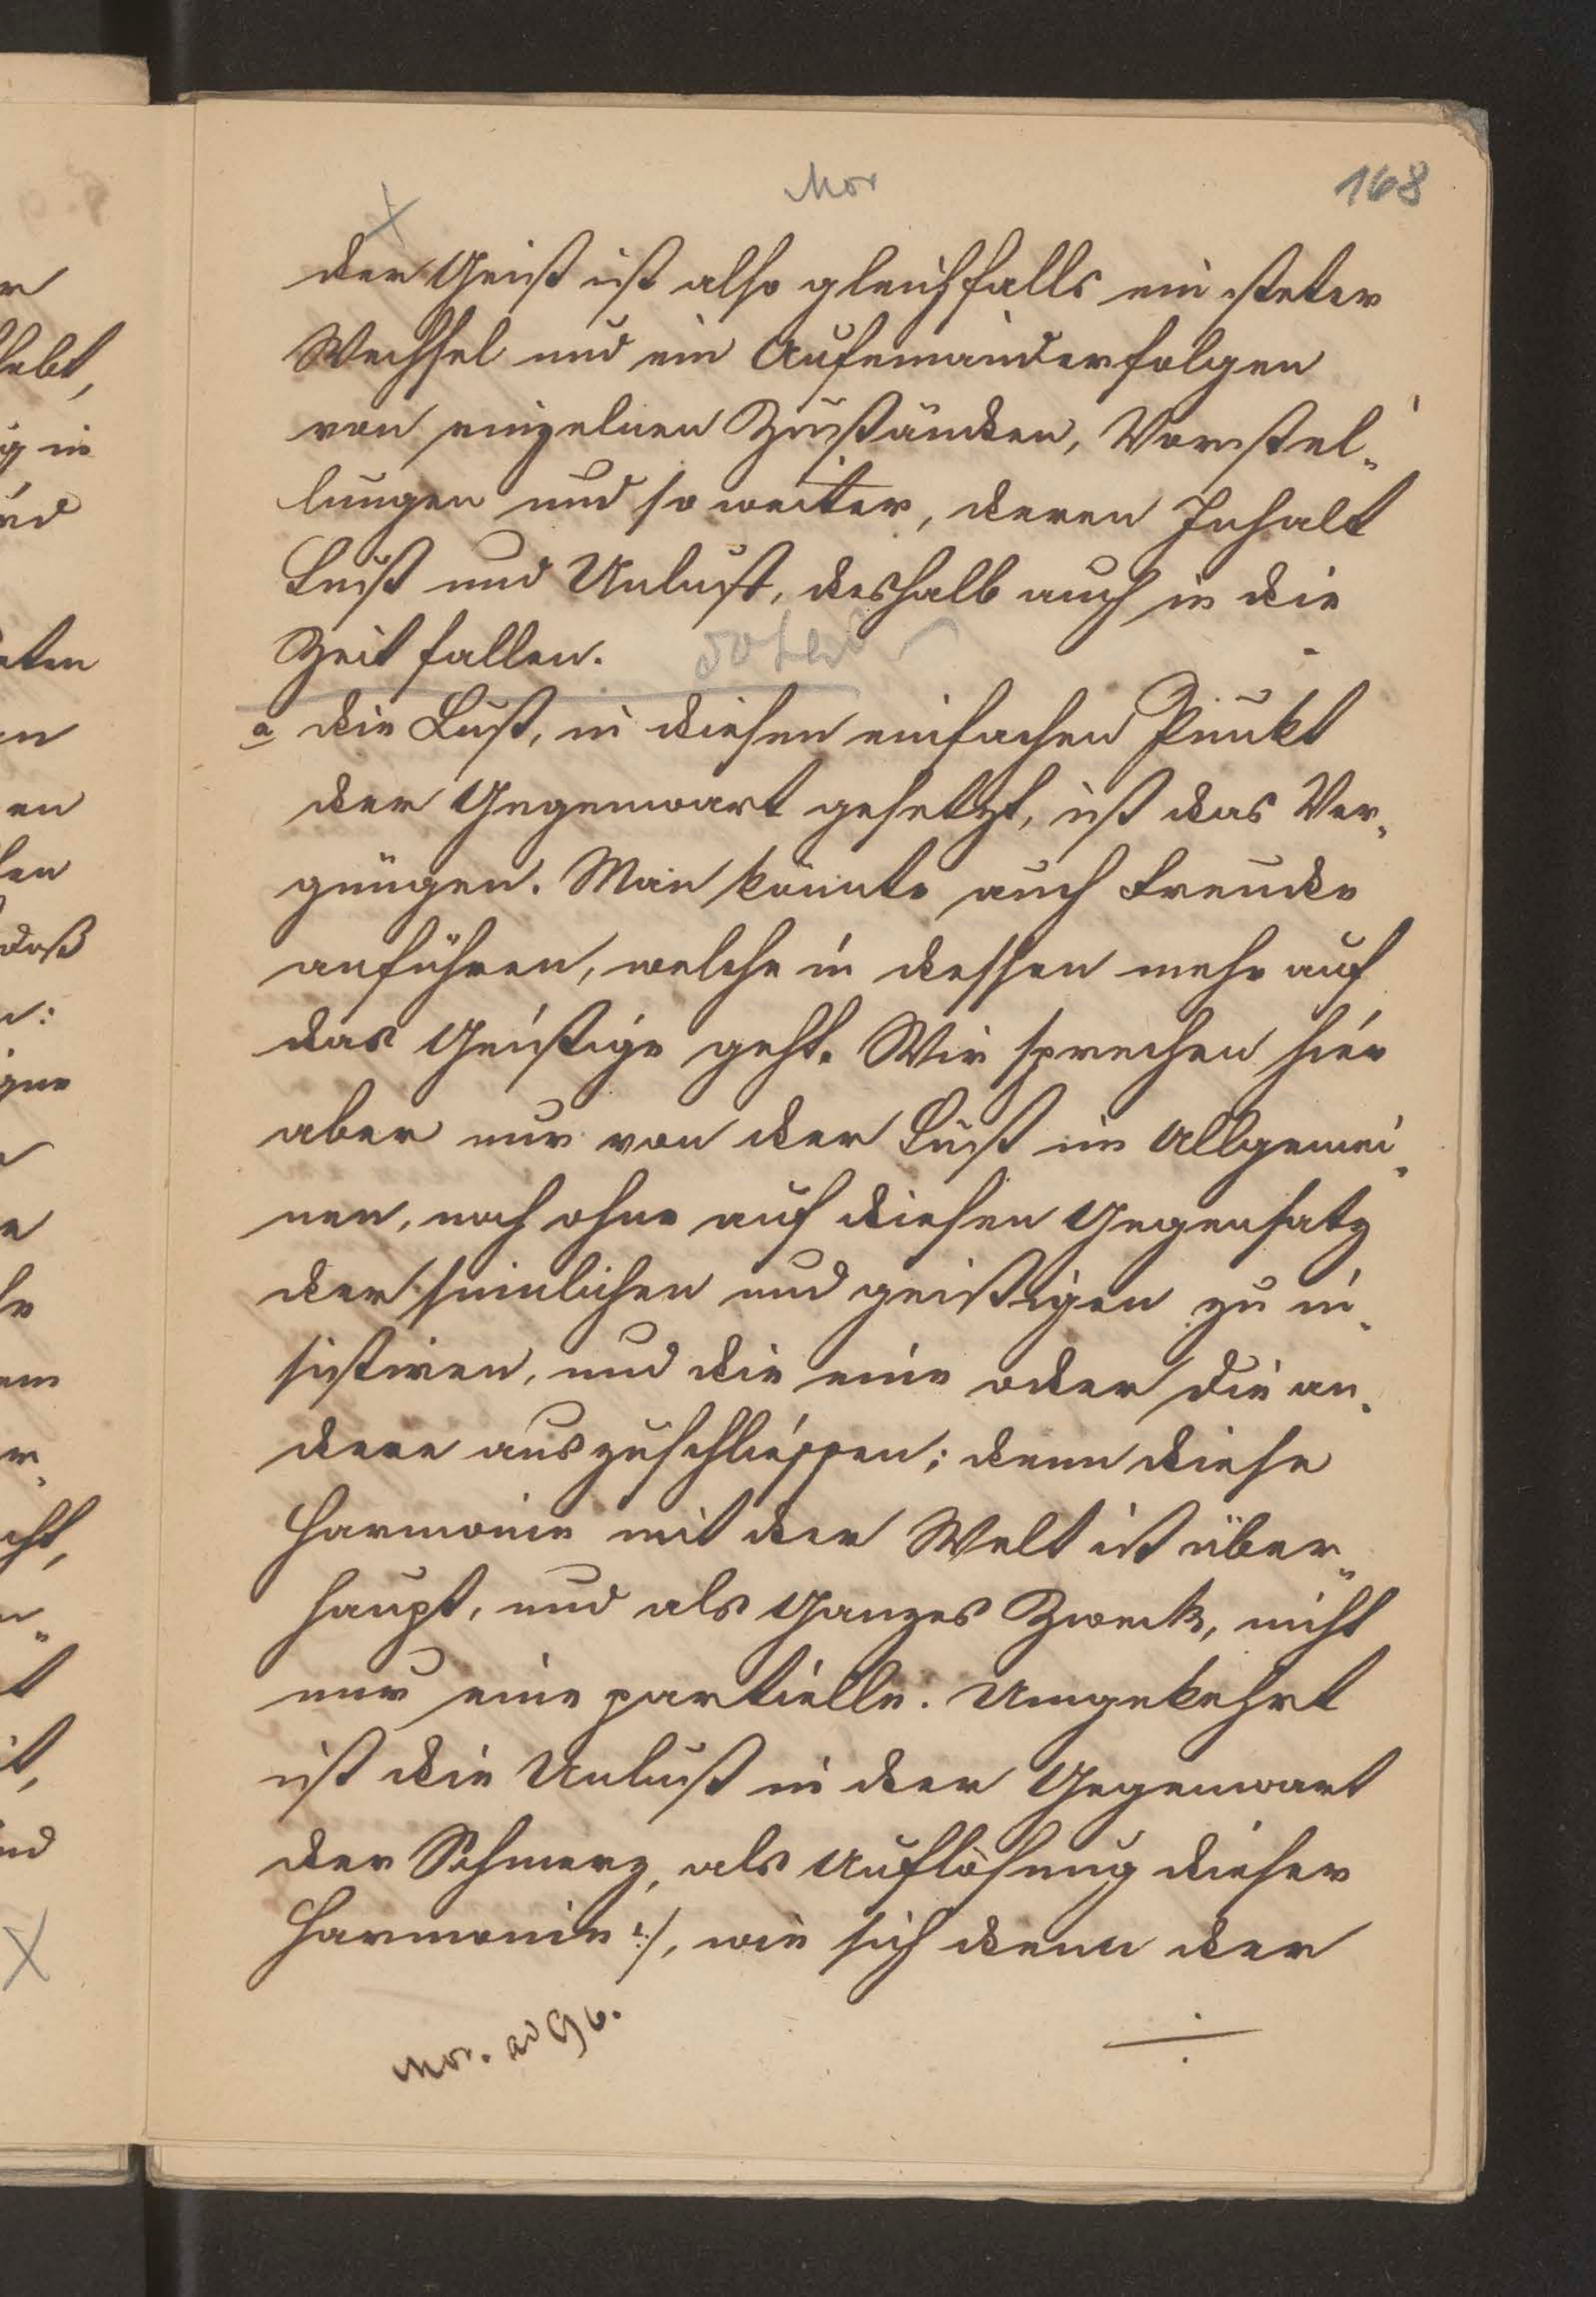 Mor
168
der Geist ist also gleichfalls ein steter
Wechsel und ein Aufeinanderfolgen
von einzelnen Zuständen, Vorstel-
lungen und so weiter, deren Inhalt
Lust und Unlust, deshalb auch in die
Zeit fallen.
a die Lust, in diesen einfachen Punkt
der Gegenwart gesetzt, ist das Ver-
gnügen. Man könnte auch Freude
anführen, welche in dessen mehr auf
das Geistige geht. Wir sprechen hier
aber nur von der Lust im Allgemei-
nen, noch ohne auf diesen Gegensatz
der sinnlichen und geistigen zu in-
sistiren, und die eine oder die an-
dere auszuschliessen; denn diese
Harmonie mit der Welt ist über-
haupt, und als Ganzes Zweck, nicht
nur eine partielle. Umgekehrt
ist die Unlust in der Gegenwart
der Schmerz, als Auflösung dieser
Harmonie :/, wie sich denn der
Mor. ad 96.